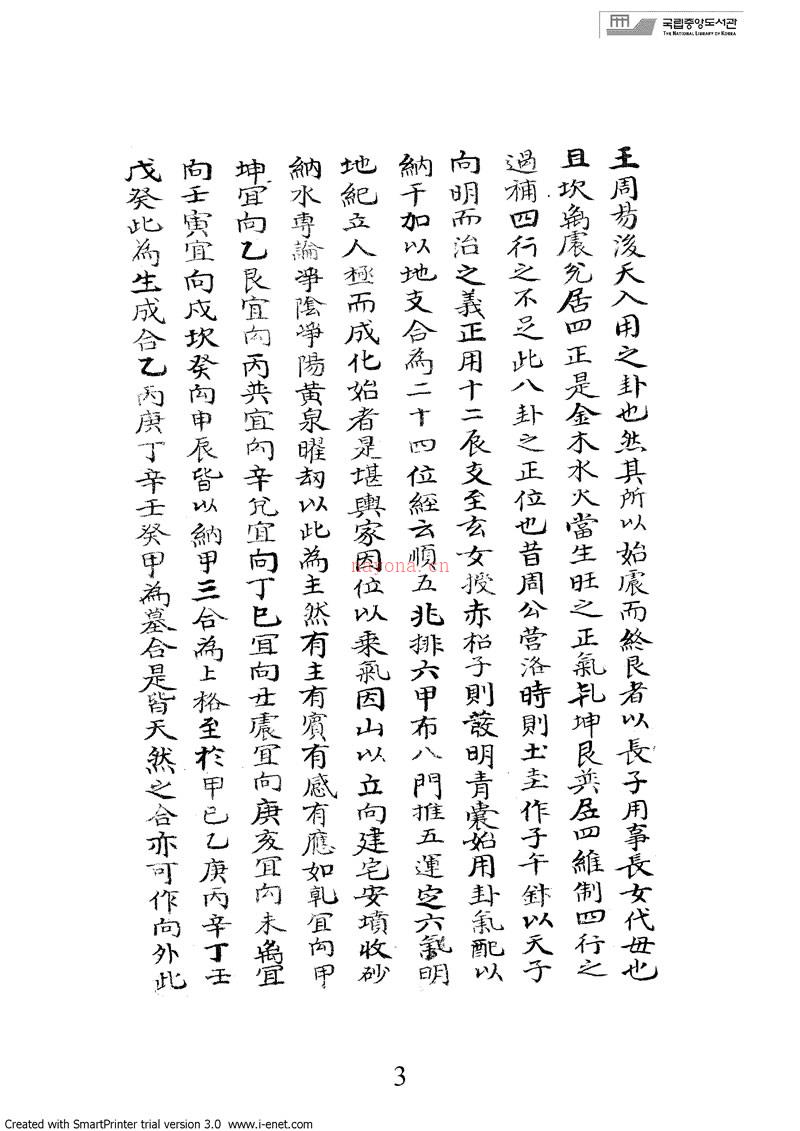 국립중앙도서관
THE NATIONAL LIBRARY OF KOREA
王周易後天入用之卦也然其所以始震而終艮者以長子用事長女代毋也
且坎离震兌居四正是金木水火當生旺之正氣乹坤艮巽居四維制四行之
過補四行之不足此八卦之正位也昔周公营洛時則土圭作子午針以天子
向明而治之義正用十二辰支至玄女授赤松子則發明青囊始用卦氣配以
納干加以地支合為二十四位經云順五兆排六甲布八門推五運定六氣明
地紀立人極而成化始者是堪輿家因位以乘氣因山以立向建宅安墳收砂
納水專論淨陰淨陽黃泉曜刼以此為主然有主有賓有感有應如乹宜向甲
坤宜向乙艮宜向丙巽宜向辛兌宜向丁巳宜向丑震宜向庚亥宜向未离宜
向壬寅宜向戌坎癸向申辰皆以納甲三合為上格至於甲己乙庚丙辛丁壬
戊癸此為生成合乙丙庚丁辛壬癸甲為墓合是皆天然之合亦可作向外此
nayona.cn
3
Created with SmartPrinter trial version 3.0 www.i-enet.com